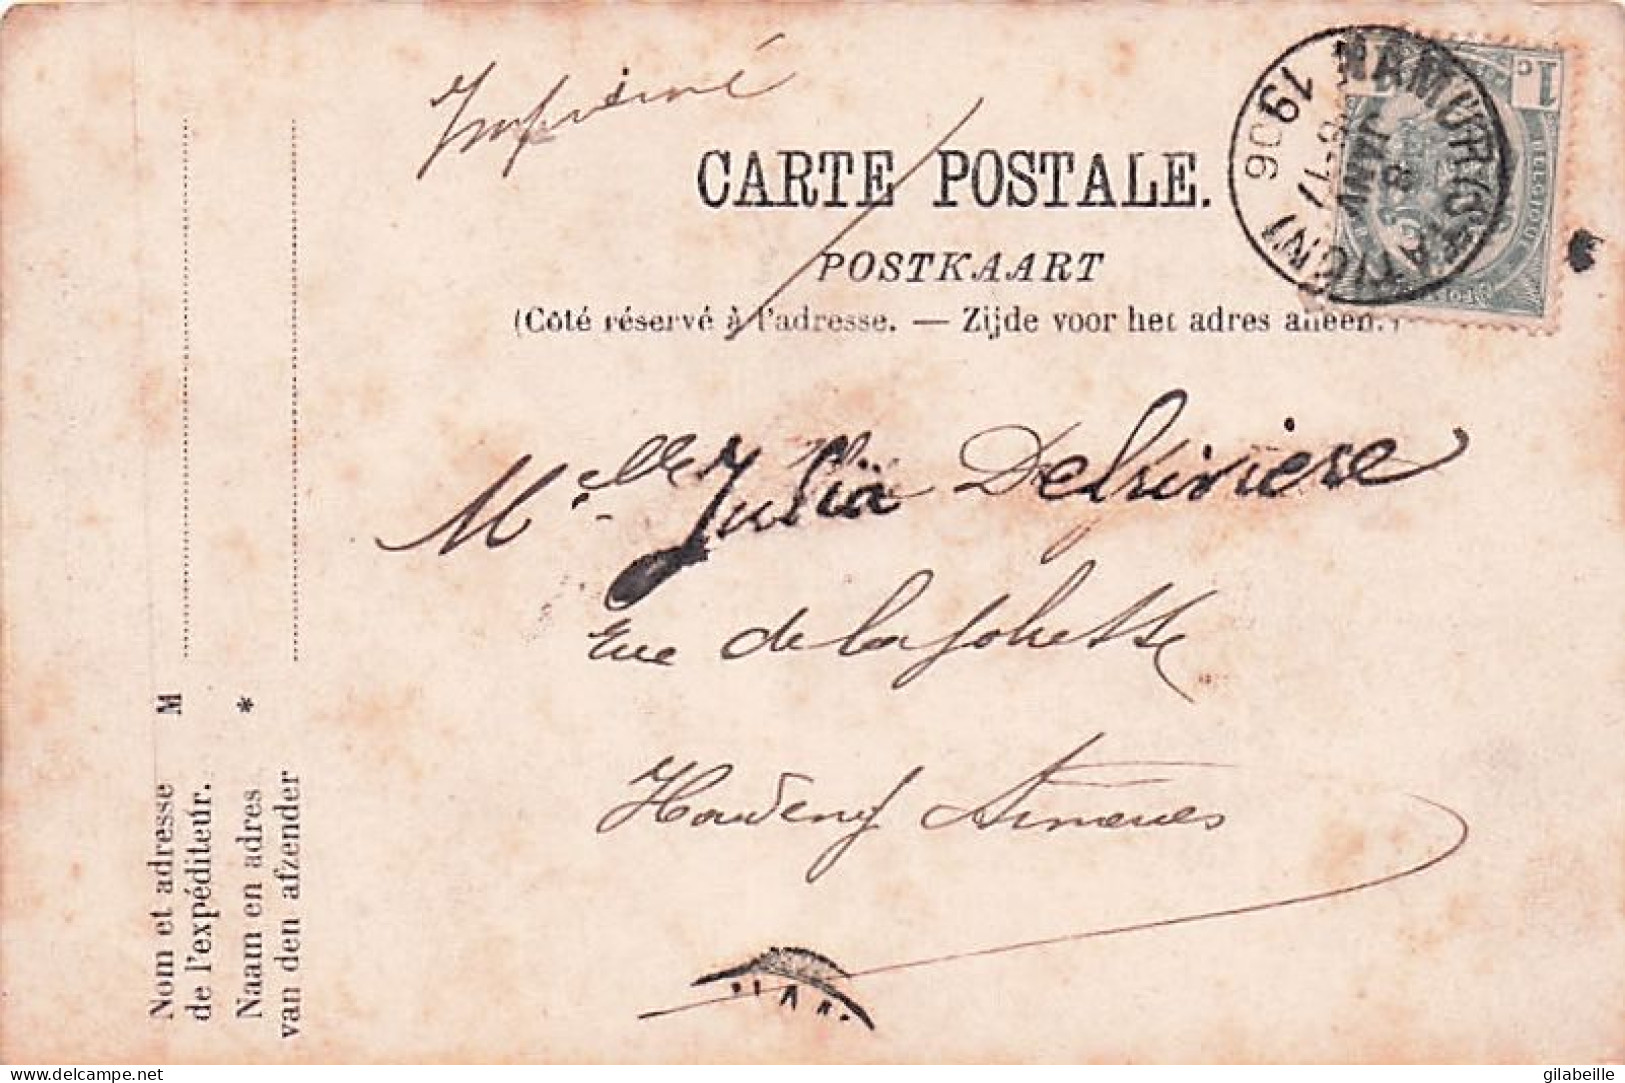 Imprimé
CARTE POSTALE.
POSTKAART
(Côté réservé à l'adresse. — Zijde voor het adres alleen.)
1c
BELGIQUE
NAMUR (STATION)
8
JANV
1906
Melle Julia Delrivière
Rue de la
M
Nom et adresse
de l'expéditeur.
*
Naam en adres
van den afzender
delcampe.net
gilabeille